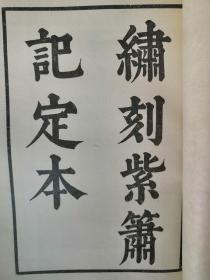 繡刻紫簫
記定本